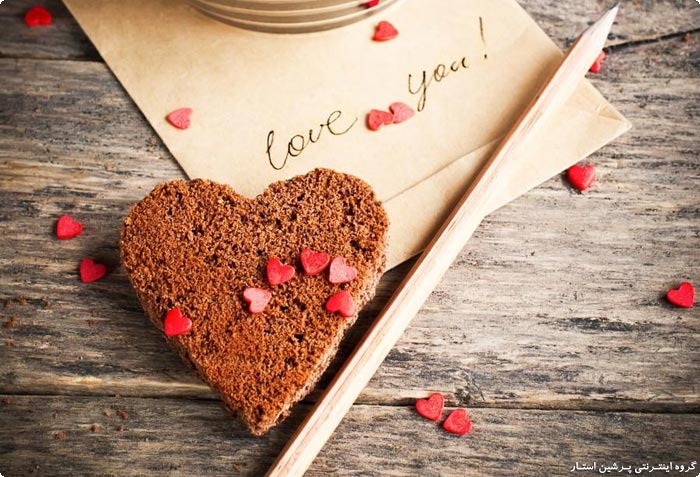 love you!
گروه اینترنتی پـرشین استـار